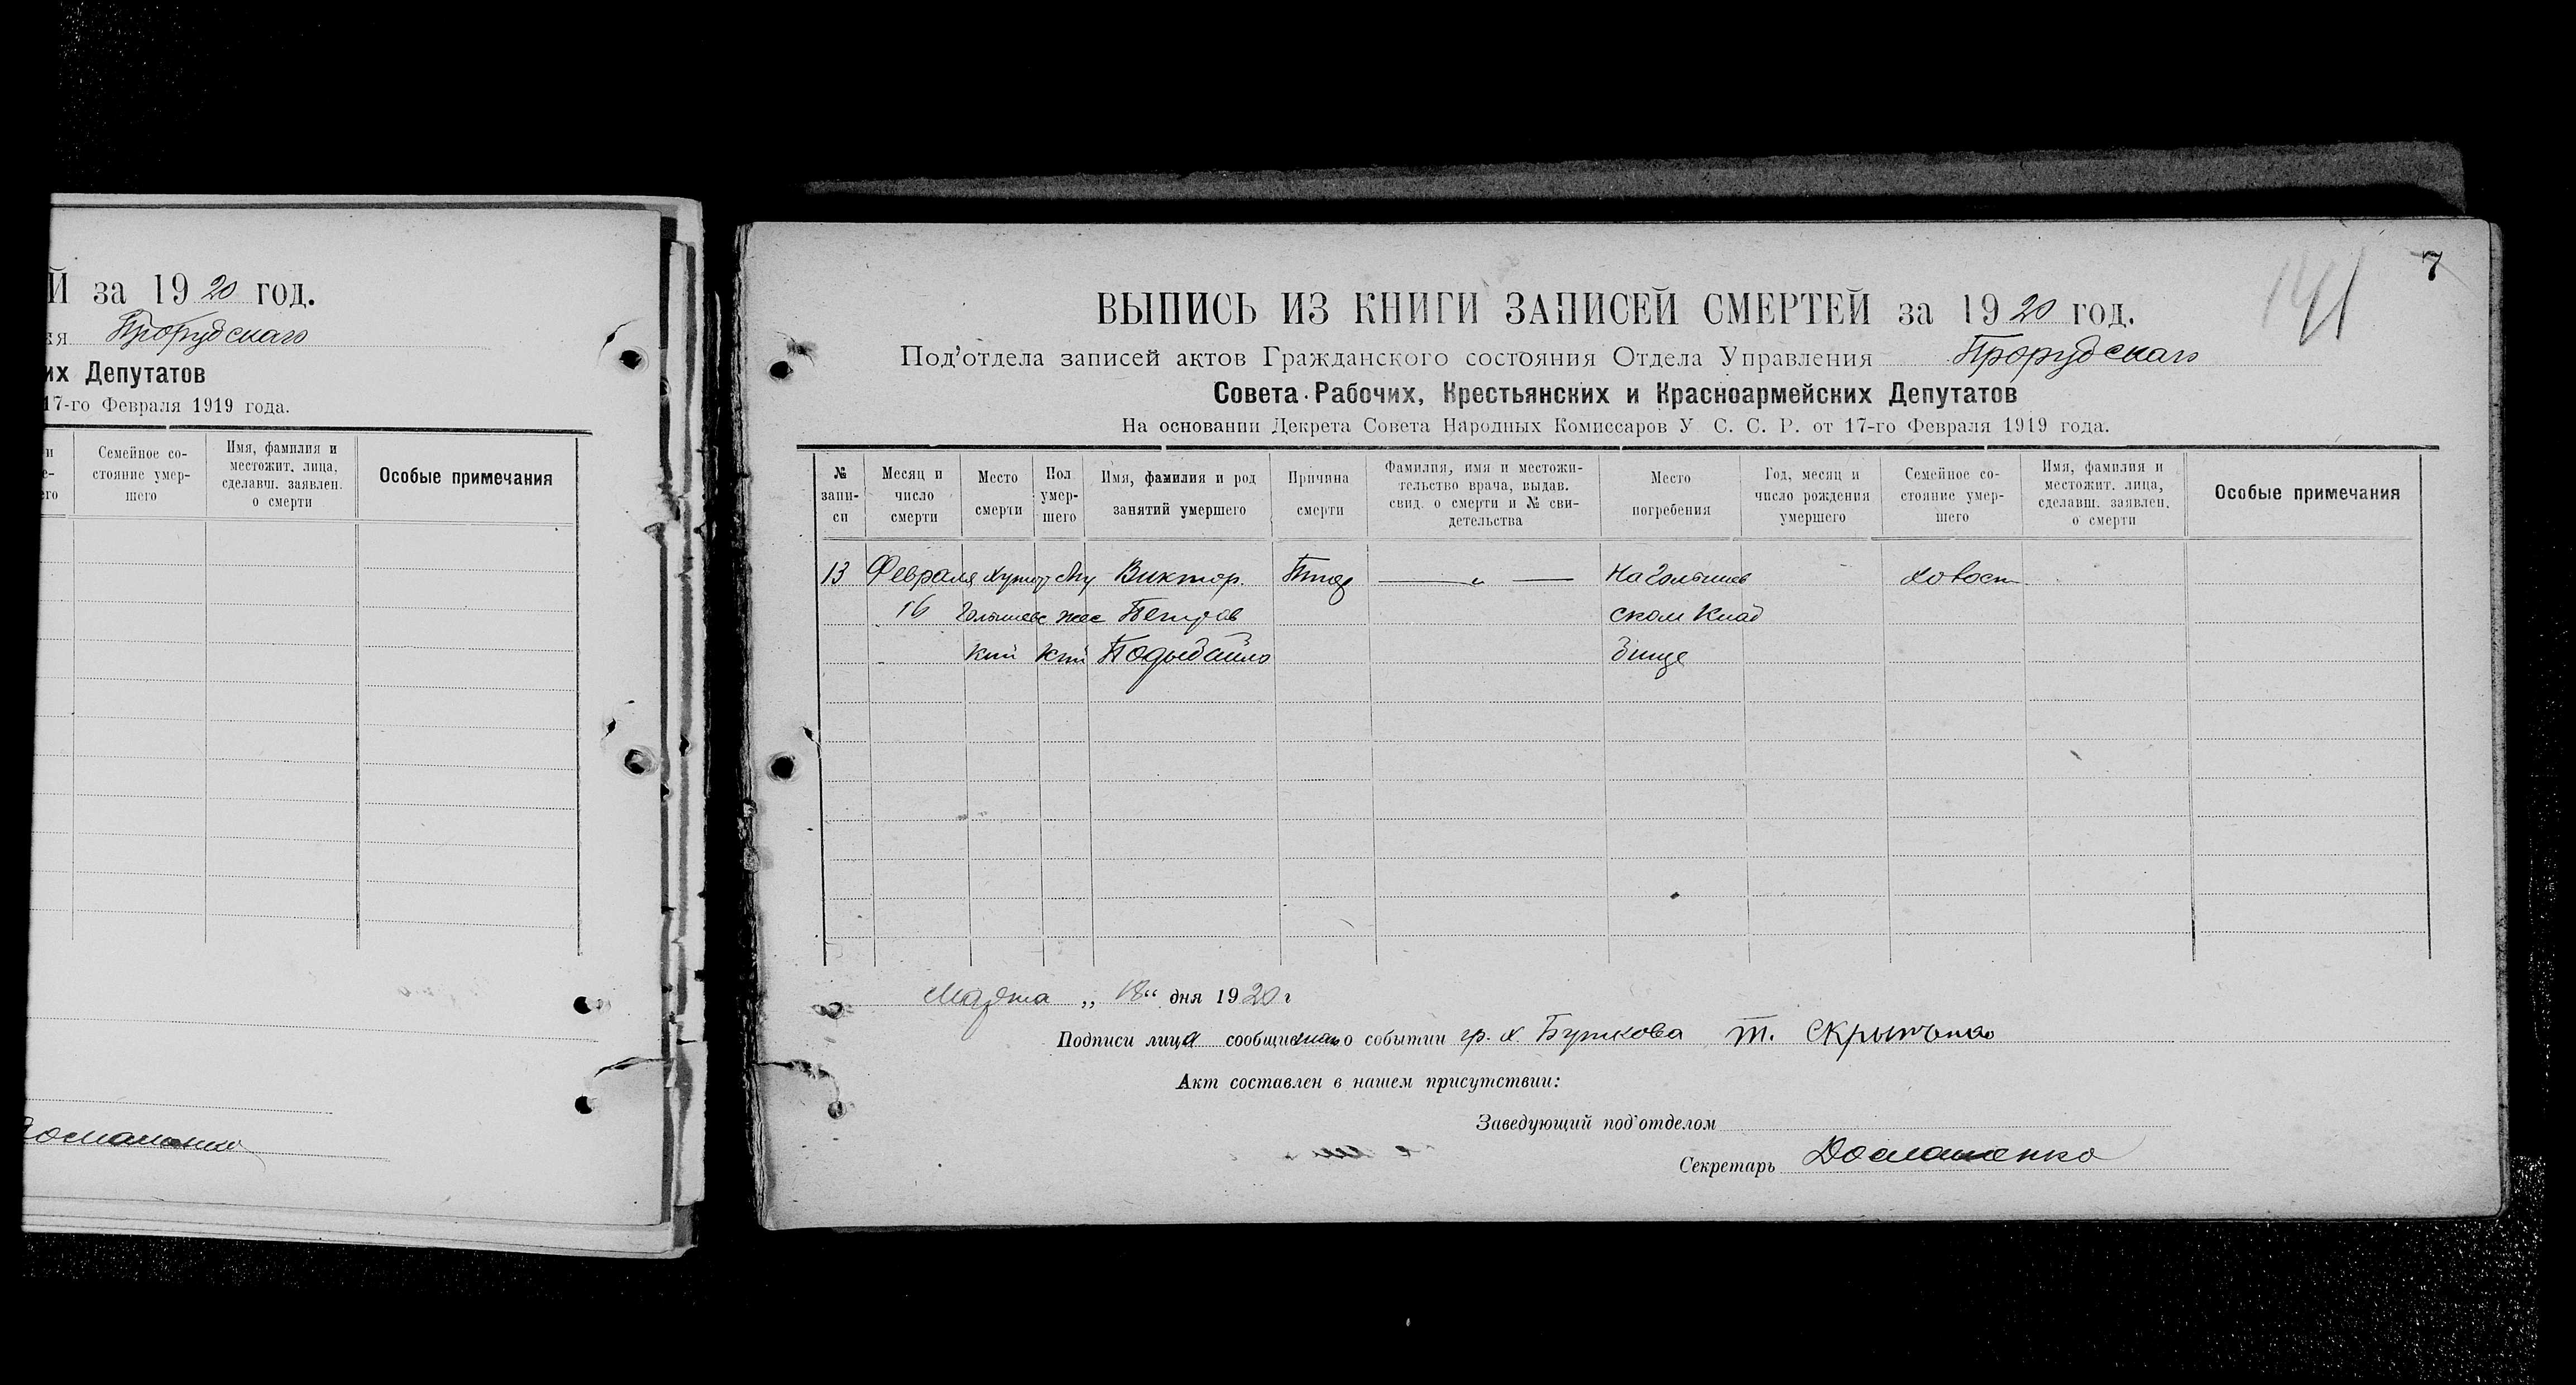 Й за 1920 год.
ия Прорубскаго
их Депутатов
17-го Февраля 1919 года.
и
е-
его
Семейное со-
стояние умер-
шего
Имя, фамилия и
местожит. лица,
сделавш. заявлен.
о смерти
Особые примечания
7
141
ВЫПИСЬ ИЗ КНИГИ ЗАПИСЕЙ СМЕРТЕЙ за 1920 год.
Под'отдела записей актов Гражданского состояния Отдела Управления Прорубскаго
Совета Рабочих, Крестьянских и Красноармейских Депутатов
На основании Декрета Совета Народных Комиссаров У. С. С. Р. от 17-го Февраля 1919 года.
№
запи-
си
Месяц и
число
смерти
Место
смерти
Пол
умер-
шего
Имя, фамилия и род
занятий умершего
Причина
смерти
Фамилия, имя и местожи-
тельство врача, выдав.
свид. о смерти и № сви-
детельства
Место
погребения
Год, месяц и
число рождения
умершего
Семейное со-
стояние умер-
шего
Имя, фамилия и
местожит. лица,
сделавш. заявлен.
о смерти
Особые примечания
13 Февраля Хутор Му Виктор. Тиф — „ — На Голышев холост
16 Голышевс жес Петров ском Клад
кий кий бище
Марта „18“ дня 1920 г
Подписи лица сообщившаго о событии гр. х. Буткова Т.
Акт составлен в нашем присутствии:
Заведующий под'отделом
Секретарь Домашенко